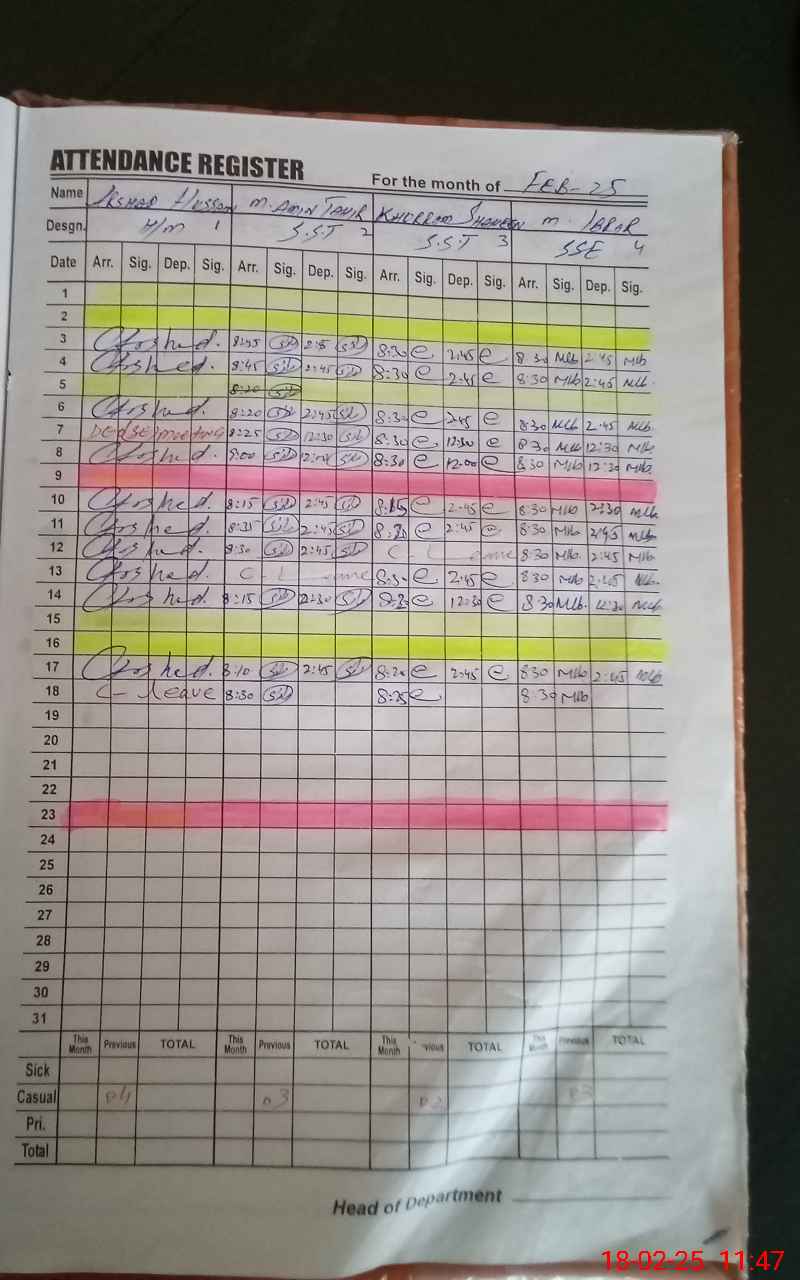 ATTENDANCE REGISTER
For the month of FEB-25
Name IRSHAD HUSSAN M. AMIN TAHIR KHURRAM SHAHEEN M. IBRAR
Desgn. H/M 1 S.S.T 2 S.S.T 3 SSE 4
Date Arr. Sig. Dep. Sig. Arr. Sig. Dep. Sig. Arr. Sig. Dep. Sig. Arr. Sig. Dep. Sig.
1
2
3 8:30 e 2:45 e 8:30 Mlb 2:45 Mlb
4 8:45 2:45 8:30 e 2:45 e 8:30 Mlb 2:45 Mlb.
5 8:20
6 8:20 2:45 8:30 e 2:45 e 8:30 Mlb 2:45 Mlb.
7 meeting 8:25 12:30 8:30 e 12:30 e 8:30 Mlb 12:30 Mlb
8 9:00 8:30 e 12:00 e 8:30 Mlb 12:30 Mlb.
9
10 8:15 2:45 8:15 e 2:45 e 8:30 Mlb 2:30 Mlb.
11 2:45 e 2:45 e 8:30 Mlb 2:45 Mlb
12 8:30 2:45 C-L 8:30 Mlb. 2:45 Mlb
13 C-L 8:30 e 2:45 e 8:30 Mlb 2:45 Mlb.
14 8:15 e 12:30 e 8:30 Mlb. 12:30 Mlb
15
16
17 8:10 2:45 8:20 e 2:45 e 8:30 Mlb 2:45 Mlb
18 C-leave 8:30 8:25 e 8:30 Mlb
19
20
21
22
23
24
25
26
27
28
29
30
31
This Month Previous TOTAL This Month Previous TOTAL This Month Previous TOTAL This Month Previous TOTAL
Sick
Casual 04 03 02 03
Pri.
Total
Head of Department
18-02-25 11:47